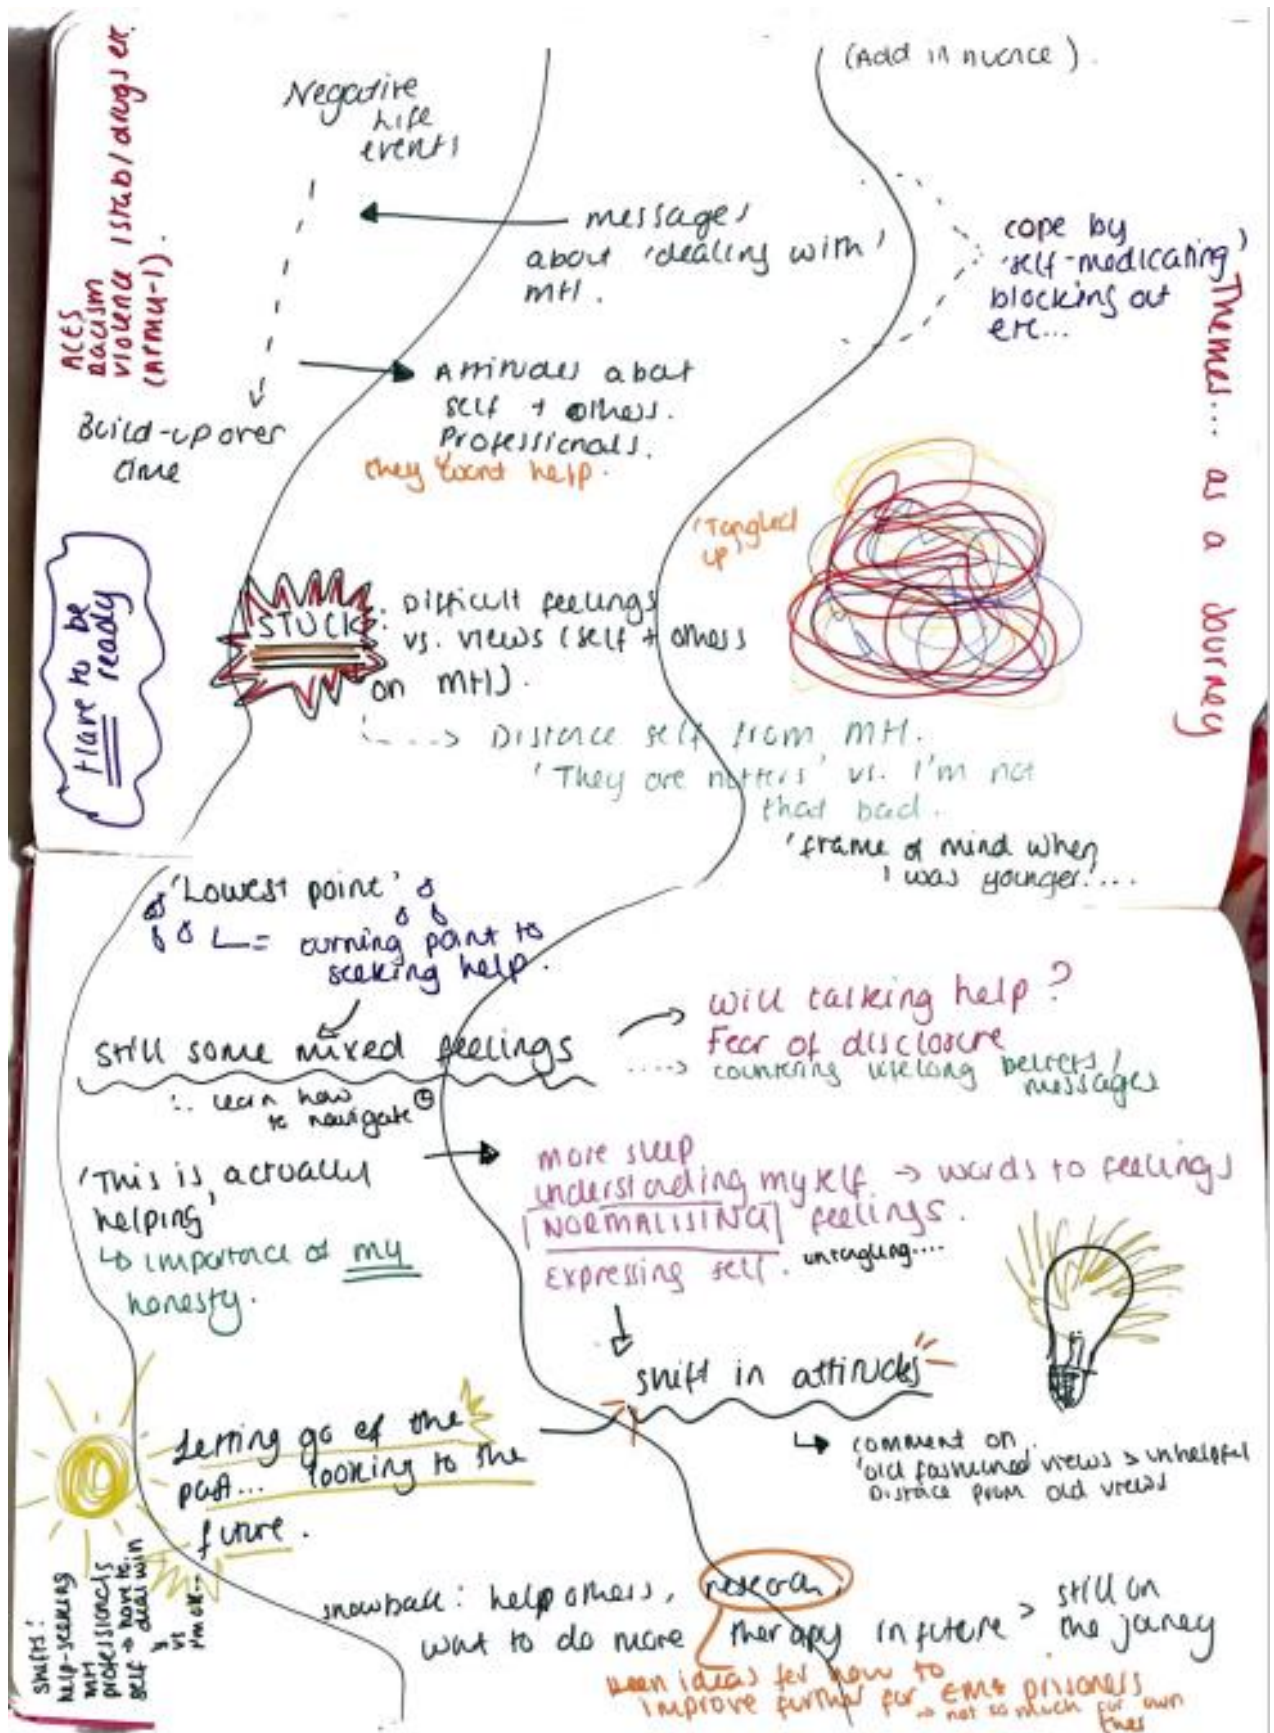 (Add in nuance).
Negative
Life
events
ACES
racism
violence / stab / drugs etc.
messages
about 'dealing with'
MH.
cope by
'self-medicating'
blocking out
etc...
Themes... as a Journey
Attitudes about
self + others.
Professionals.
they want help.
Build-up over
time
'Tangled
up'
Have to be
ready
STUCK
: Difficult feelings
vs. views (self + others
on MH).
Distance self from MH.
'They are nutters' vs. I'm not
that bad.
'frame of mind when
I was younger'....
'Lowest point'
= turning point to
seeking help.
still some mixed feelings
∴ learn how
to navigate
will talking help?
Fear of disclosure
countering lifelong beliefs/
messages
'This is actually
helping'
↳ importance of my
honesty.
more sleep
understanding myself. → words to feelings
NORMALISING feelings.
expressing self. untangling....
shift in attitudes
↳ comment on
'old fashioned' views → unhelpful
Distance from old views
Letting go of the
past... looking to the
future.
shifts:
help-seeking
MH
professionals
self → have to
deal w in
vs
I'm ok...
snowball: help others, research,
want to do more therapy in future > still on
the journey
keen ideas for how to
improve further for EM prisoners
→ not so much for own